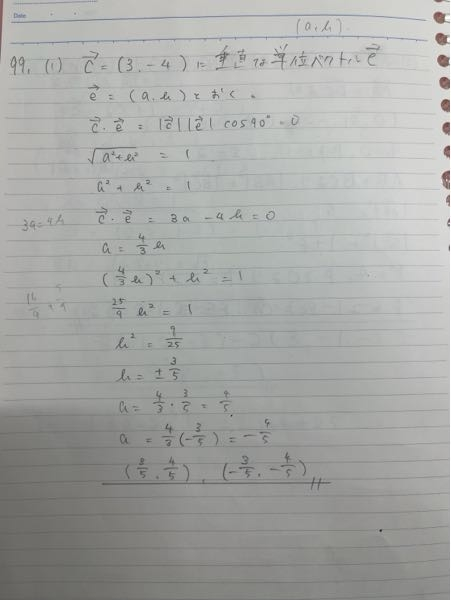 Date
(a, b)
99. (1) c→ = (3, -4) に垂直な単位ベクトル e→
e→ = (a, b) とおく。
c→・e→ = |c→||e→| cos90° = 0
√a²+b² = 1
a² + b² = 1
3a=4b
c→・e→ = 3a - 4b = 0
a = 4/3 b
(4/3 b)² + b² = 1
16/9 + 9/9
25/9 b² = 1
b² = 9/25
b = ± 3/5
a = 4/3 · 3/5 = 4/5
a = 4/3 (-3/5) = -4/5
(3/5, 4/5), (-3/5, -4/5)